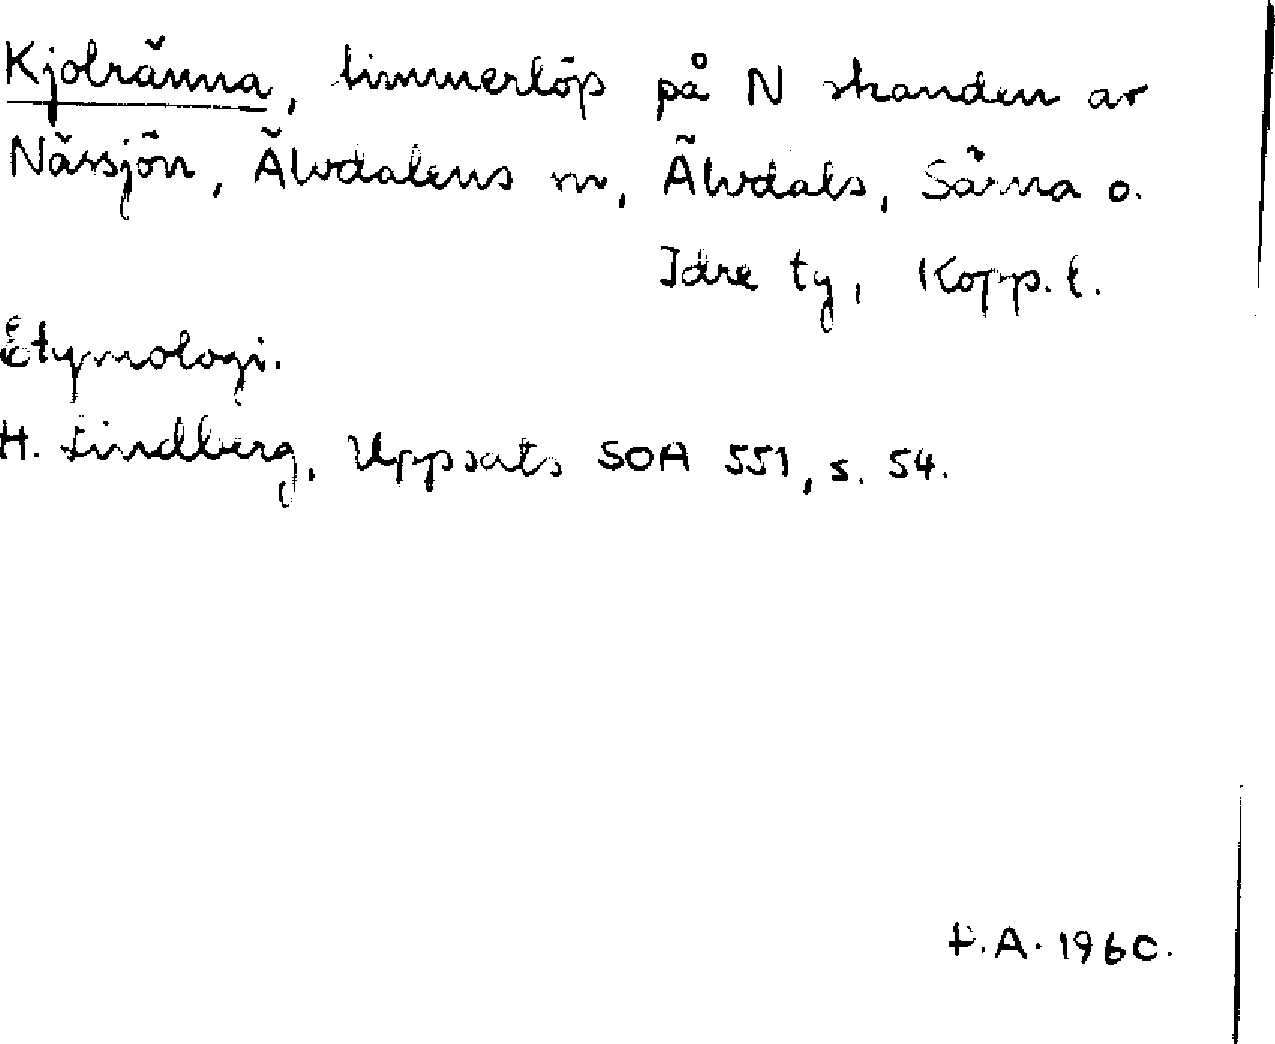 Kjolränna, timmerlöp på N stranden av
Nässjön, Älvdalens sn, Älvdals, Särna o.
Idre tg, Kopp. l.
Etymologi.
H. Lindberg, Uppsats SOA 551, s. 54.
A. 1960.